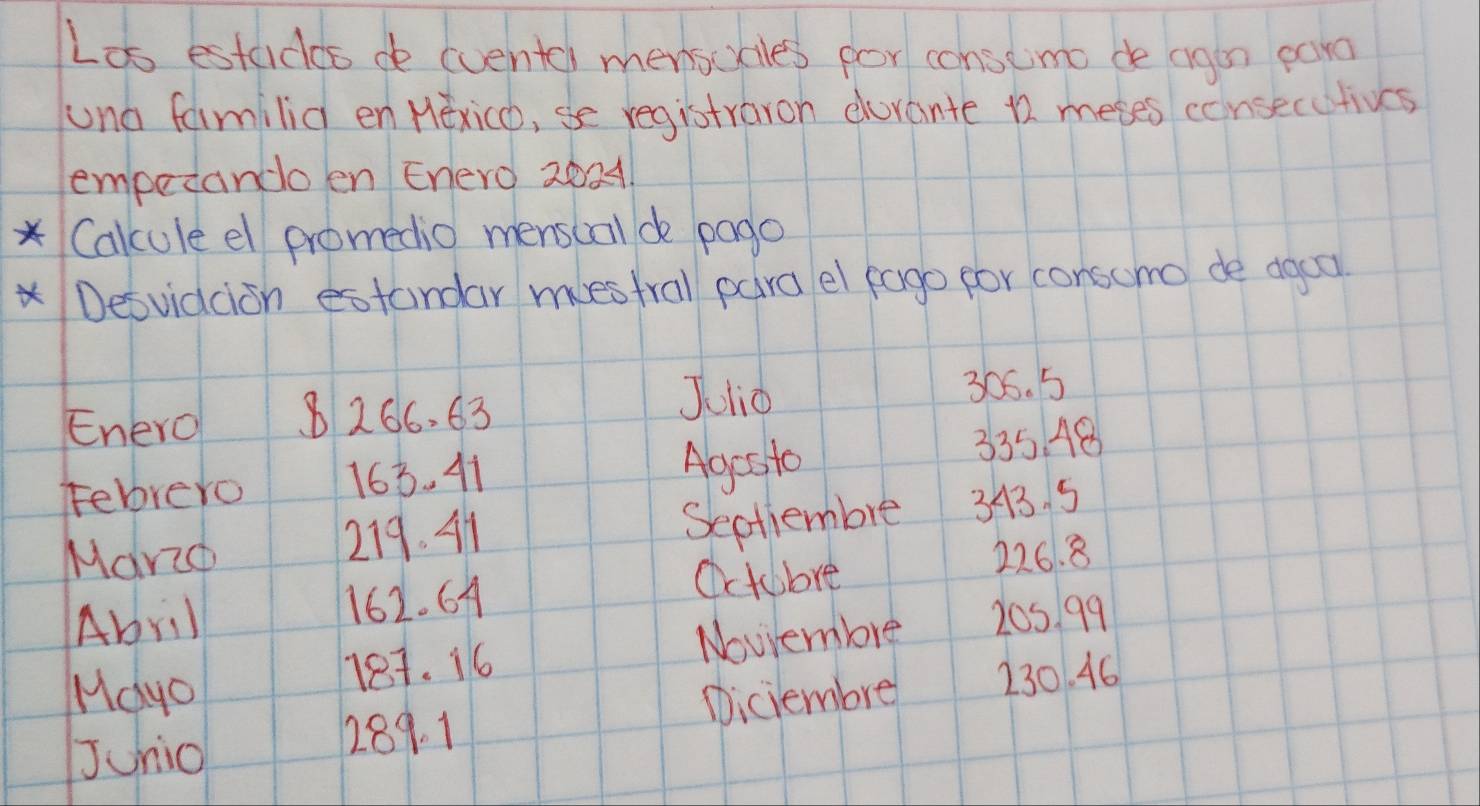 Los estados de cuenta mensuales por consumo de agua para
una familia en México, se registraron durante 12 meses consecutivos
empezando en Enero 2024.
* Calcule el promedio mensual de pago
* Desviación estandar muestral para el pago por consumo de agua.
Enero $ 266.63
Febrero 163.41
Marzo 219.41
Abril 162.64
Mayo 187.16
Junio 289.1
Julio 306.5
Agosto 335.48
Septiembre 343.5
Octubre 226.8
Noviembre 205.99
Diciembre 230.46